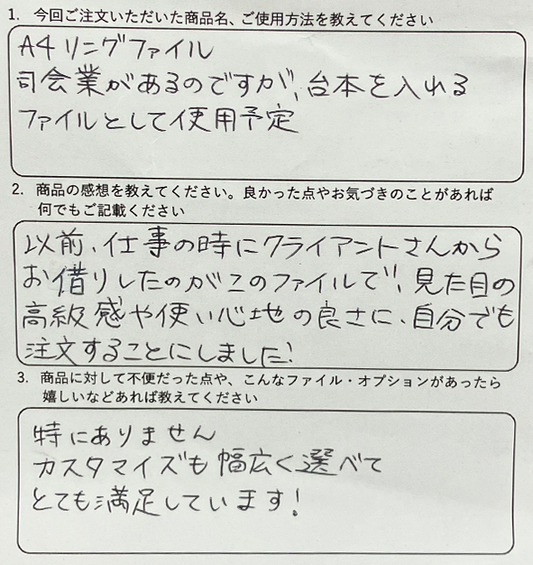 1. 今回ご注文いただいた商品名、ご使用方法を教えてください
A4 リングファイル
司会業があるのですが、台本を入れる
ファイルとして使用予定
2. 商品の感想を教えてください。良かった点やお気づきのことがあれば
何でもご記載ください
以前、仕事の時にクライアントさんから
お借りしたのがこのファイルで、見た目の
高級感や使い心地の良さに、自分でも
注文することにしました!
3. 商品に対して不便だった点や、こんなファイル・オプションがあったら
嬉しいなどあれば教えてください
特にありません
カスタマイズも幅広く選べて
とても満足しています!